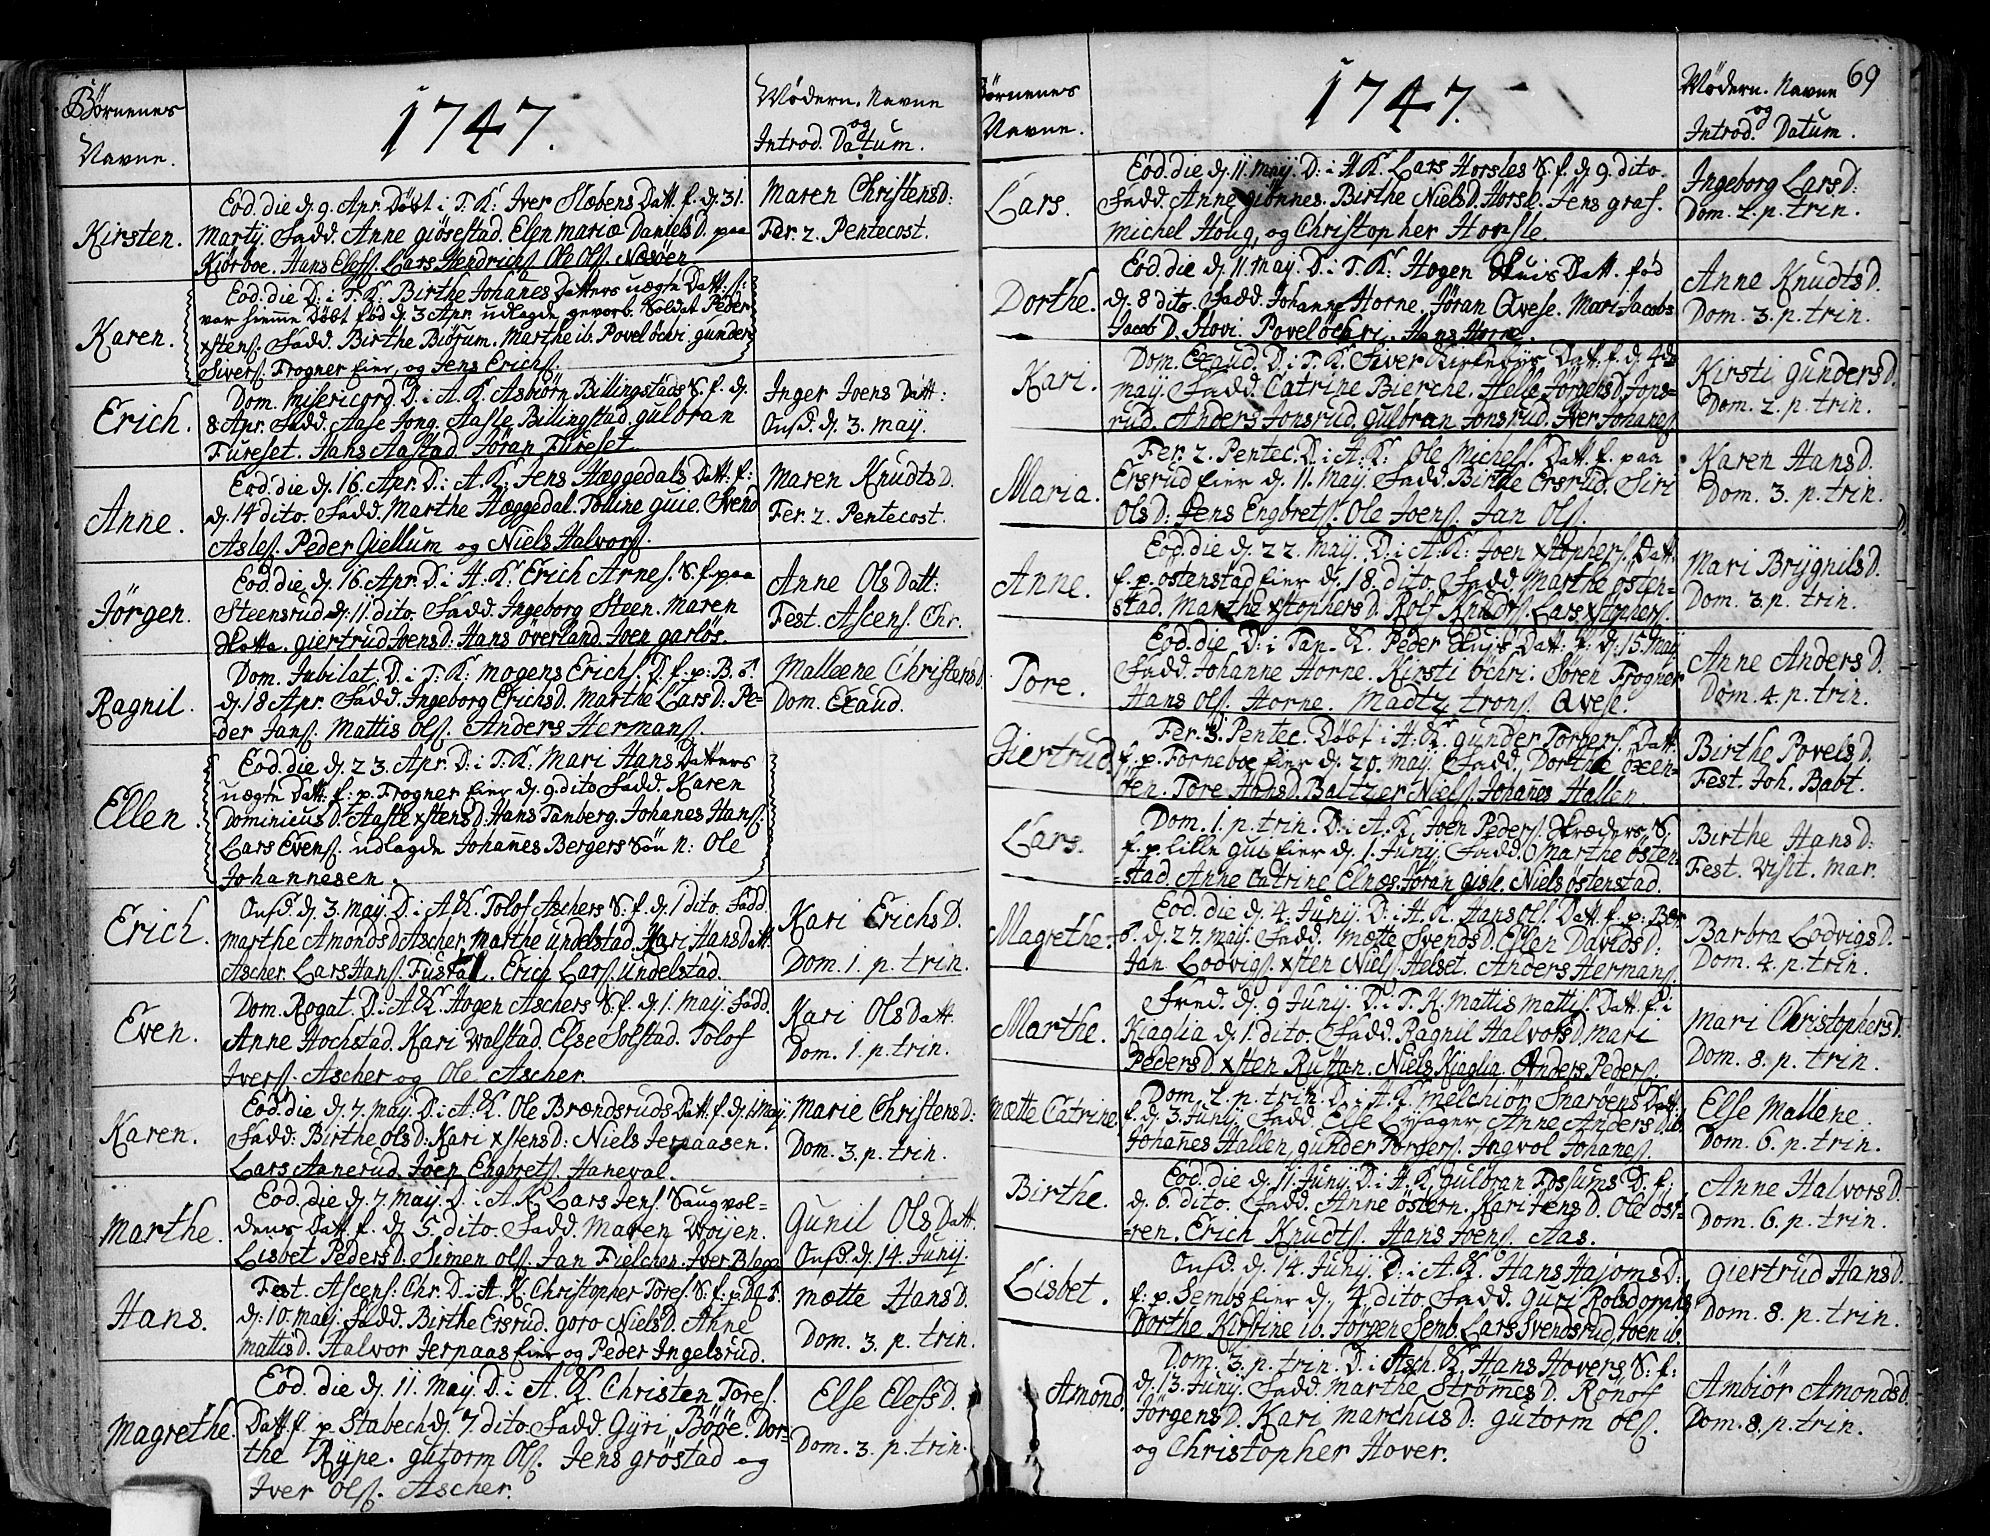 Børnenes
Navne.
1747.
Mødern. Navne
og
Introd. Datum.
Kirsten.
Eod. die d. 9. Apr. Døbt i T. K. Iver Slæbens Datt. f. d. 31.
Martij. Fadd. Anne giösestad. Elen Mariæ Daniels D. paa
Kiørboe. Hans Elefs. Lars Hendrichs. Ole Ols. Næsöen.
Maren Christens D:
Fer. 2. Pentecost.
Karen.
Eod. die D: i T. K. Birthe Johanes Datters uægte Datt:
var hiemme Døbt fød d. 3 Apr. udlagde gevorb. Soldat Peder
xstens. Fadd. Birthe Biørum. Marthe ib. Povel öchri. gunder
Sivers. Frogner Eier, og Jens Erichs.
Erich.
Dom. Misericord. D. i A. K. Asbiørn Billingstads S. f. d.
8 Apr. Fadd. Aase Jong. Aasle Billingstad. gulbran
Fureset. Hans Aastad. Jöran Fureset.
Inger Joens Datt:
Onsd. d. 3. May.
Anne.
Eod. die d. 16. Apr. D. i A. K. Jens Hæggedals Datt. f.
d. 14 dito. Fadd. Marthe Hæggedal. Tolline guie. Svend
Asles. Peder Giellum og Niels Halvors.
Maren Knudts D.
Fer. 2. Pentecost.
Jörgen.
Eod. die d. 16. Apr. D. i H. K. Erich Arnes. S. f. paa
Steensrud d. 11 dito. Fadd. Ingeborg Steen. Maren
Skotta. giertrud Joens D: Hans överland. Joen garlös.
Anne Ols Datt:
Fest. Ascens. Chr.
Ragnil.
Dom. Jubilat. D. i T. K. Mogens Erichs. D. f. p. B.
d. 18 Apr. Fadd. Ingeborg Erichs D. Marthe Lars D. Pe-
der Jans. Mattis Ols. Anders Hermans.
Malleene Christens D.
Dom. Exaud.
Ellen.
Eod. die d. 23. Apr. D. i T. K. Mari Hans Datters
uægte Datt. f. p. Frogner Eier d. 9. dito Fadd. Karen
Dominicus D. Aasle xstens D. Hans Tanberg. Johanes Hans.
Lars Evens. udlagde Johañes Bergers Søn n: Ole
Johannesen.
Erich.
Onsd. d. 3. May. D. i A. K. Tolof Aschers S. f. d. 1 dito. Fadd.
Marthe Amonds D. Ascher. Marthe undelstad. Kari Hans Datt.
Ascher. Lars Hans. Fusdal. Erich Lars. undelstad.
Kari Erichs D.
Dom. 1. p. trin.
Even.
Dom. Rogat. D. i A. K. Hogen Aschers S. f. d. 1. May. Fadd.
Anne Hochstad. Kari Walstad. Else Solstad. Tolof
Ivers. Ascher og Ole Ascher.
Kari Ols Datt.
Dom. 1. p. trin.
Karen.
Eod. die d. 7. May. D. i A. K. Ole Brændsruds Datt. f. d. 1 May
Fadd: Birthe Ols D. Kari xstens D: Niels Jerpaasen.
Lars Aanerud. Joen Engbrets. Haneval.
Marie Christens D:
Dom. 3. p. trin.
Marthe.
Eod. die d. 7. May. D. i A. K. Lars Jens. Saugvol-
dens Datt. f. d. 5. dito. Fadd. Maren Wöyen.
Lisbet Peders D. Simen Ols. Jan Fielchen. Iver Blags.
Gunil Ols Datt.
Onsd. d. 14. Junij.
Hans.
Fest. Ascens. Chr. D. i A. K. Christopher Tores. S. f. p.
d. 10. May. Fadd. Birthe Ersrud. goro Niels D. Anne
Mattis D. Halvor Jerpaas Eier og Peder Ingelsrud.
Mætte Hans D.
Dom. 3. p. trin.
Magrethe.
Eod. die d. 11. May. D. i A. K. Christen Tores.
Datt. f. p. Stabech d. 7. dito. Fadd. Gyri Bööe. Dor-
the Rype. gutorm Ols. Jens gröstad og
Iver Ols. Ascher.
Else Elefs D.
Dom. 3. p. trin.
69
Børnenes
Navne.
1747.
Mödern. Navne
og
Introd. Datum.
Lars.
Eod. die d. 11. May. D: i H. K. Lars Horsles S. f. d. 9. dito.
Fadd. Anne giönnes. Birthe Niels D. Horsl. Jens graf.
Michel Houg, og Christopher Horsle.
Ingeborg Lars D:
Dom. 2. p. trin.
Dorthe.
Eod. die d. 11. May. D. i T. K. Hogen Skuis Datt. fød
d. 8 dito. Fadd. Johanne Horne. Jöran Qvese. Mari Jacobs
Jacob D. Hovi. Povel öchri. Hans Horne.
Anne Knudts D.
Dom. 3. p. trin.
Kari.
Dom. Exaud. D. i T. K. Siver Kirkebyes Datt. f. d. 4de
May. Fadd. Catrine Bierche. Helle Jörgens D. Jons-
rud. Anders Jonsrud. Gulbran Jonsrud. Iver Johanes.
Kirsti gunders D.
Dom. 2. p. trin.
Maria.
Fer. 2. Pentec. D. i A. K. Ole Michels. Datt. f. paa
Ersrud Eier d. 11. May. Fadd. Birthe Ersrud. Siri
Ols D: Jens Engbrets. Ole Joens. Jan Ols.
Karen Hans D.
Dom. 3. p. trin.
Anne.
Eod. die d. 22. May. D. i A. K. Joen xstophers. Datt.
f. p. östenstad Eier d. 18. dito. Fadd. Marthe östen-
stad. Marthe xstophers D. Rolf Knuds. Lars xstophers.
Mari Brÿgnils D.
Dom. 3. p. trin.
Tore.
Eod. die D: i Tan. K. Peder Skuis Datt. f. d. 15. May
Fadd. Johanne Horne. Kirsti öchri. Sören Frogner
Hans Ols. Horne. Madtz trons. Qvese.
Anne Anders D.
Dom. 4. p. trin.
Giertrud.
Fer. 3. Pentec. Døbt i H. K. gunder Torgers. Datt.
f. p. Forneboe Eier d. 20. May. Fadd. Dorthe oxen-
öen. Tore Hans D. Baltzer Niels. Johañes Hallen.
Birthe Povels D.
Fest. Joh. Babt.
Lars.
Dom. 1. p. trin. D. i A. K. Joen Peders. Skræders S.
f. p. lille gui Eier d. 1. Junij. Fadd. Marthe östen-
=stad. Anne Catrine Elnæs. Jöran gisle. Niels östenstad.
Birthe Hans D:
Fest. Visit. Mar.
Magrethe.
Eod. die d. 4. Junij. D. i H. K. Hans Ols. Datt. f. p. Ber
d. 27. May. Fadd. Mætte Svends D. Ellen Davids D.
Jan Lodvigs. xsten Niels. Helset. Anders Hermans.
Barbra Lodvigs D.
Dom. 4. p. trin.
Marthe.
Fred. d. 9 Junij. D. i T. K. Mattis Mattis. Datt. f. i
Kiaglia d. 1. dito. Fadd. Ragnil Halvors D. Mari
Peders D. xsten Rustan. Niels Kiaglia. Anders Peders.
Mari Christophers D.
Dom. 8. p. trin.
Mætte Catrine.
Dom. 2. p. trin. D. i A. K. Melchiör Snaröens Datt.
f. d. 3. Junij. Fadd. Else Lysager. Anne Anders D. ib.
Johañes Hallen. gunder Torgers. Ingvol Johañes.
Else Mallene.
Dom. 6. p. trin.
Birthe.
Eod. die d. 11. Junij. D. i H. K. gulbran Fossums D. f.
d. 6. dito. Fadd. Anne östern. Kari Jens D. Ole öst-
=ren. Erich Knudts. Hans Joens. Aas.
Anne Halvors D.
Dom. 6. p. trin.
Lisbet.
Onsd. d. 14. Junij. D. i A. K. Hans Hajoms D:
f. p. Sembs Eier d. 4 dito. Fadd. Guri Rolsdorphs
Dorthe Kirstine ib. Jörgen Semb. Lars Svendsrud, Joen ib.
Giertrud Hans D.
Dom. 8. p. trin.
Amond.
Dom. 3. p. trin. D. i Asch. K. Hans Hovers S. f.
d. 13. Junij. Fadd. Marthe Strömes D. Ronof
Jörgens D. Kari Marchus D. gutorm Ols.
og Christopher Hover.
Ambiör Amonds D.
Dom. 8. p. trin.